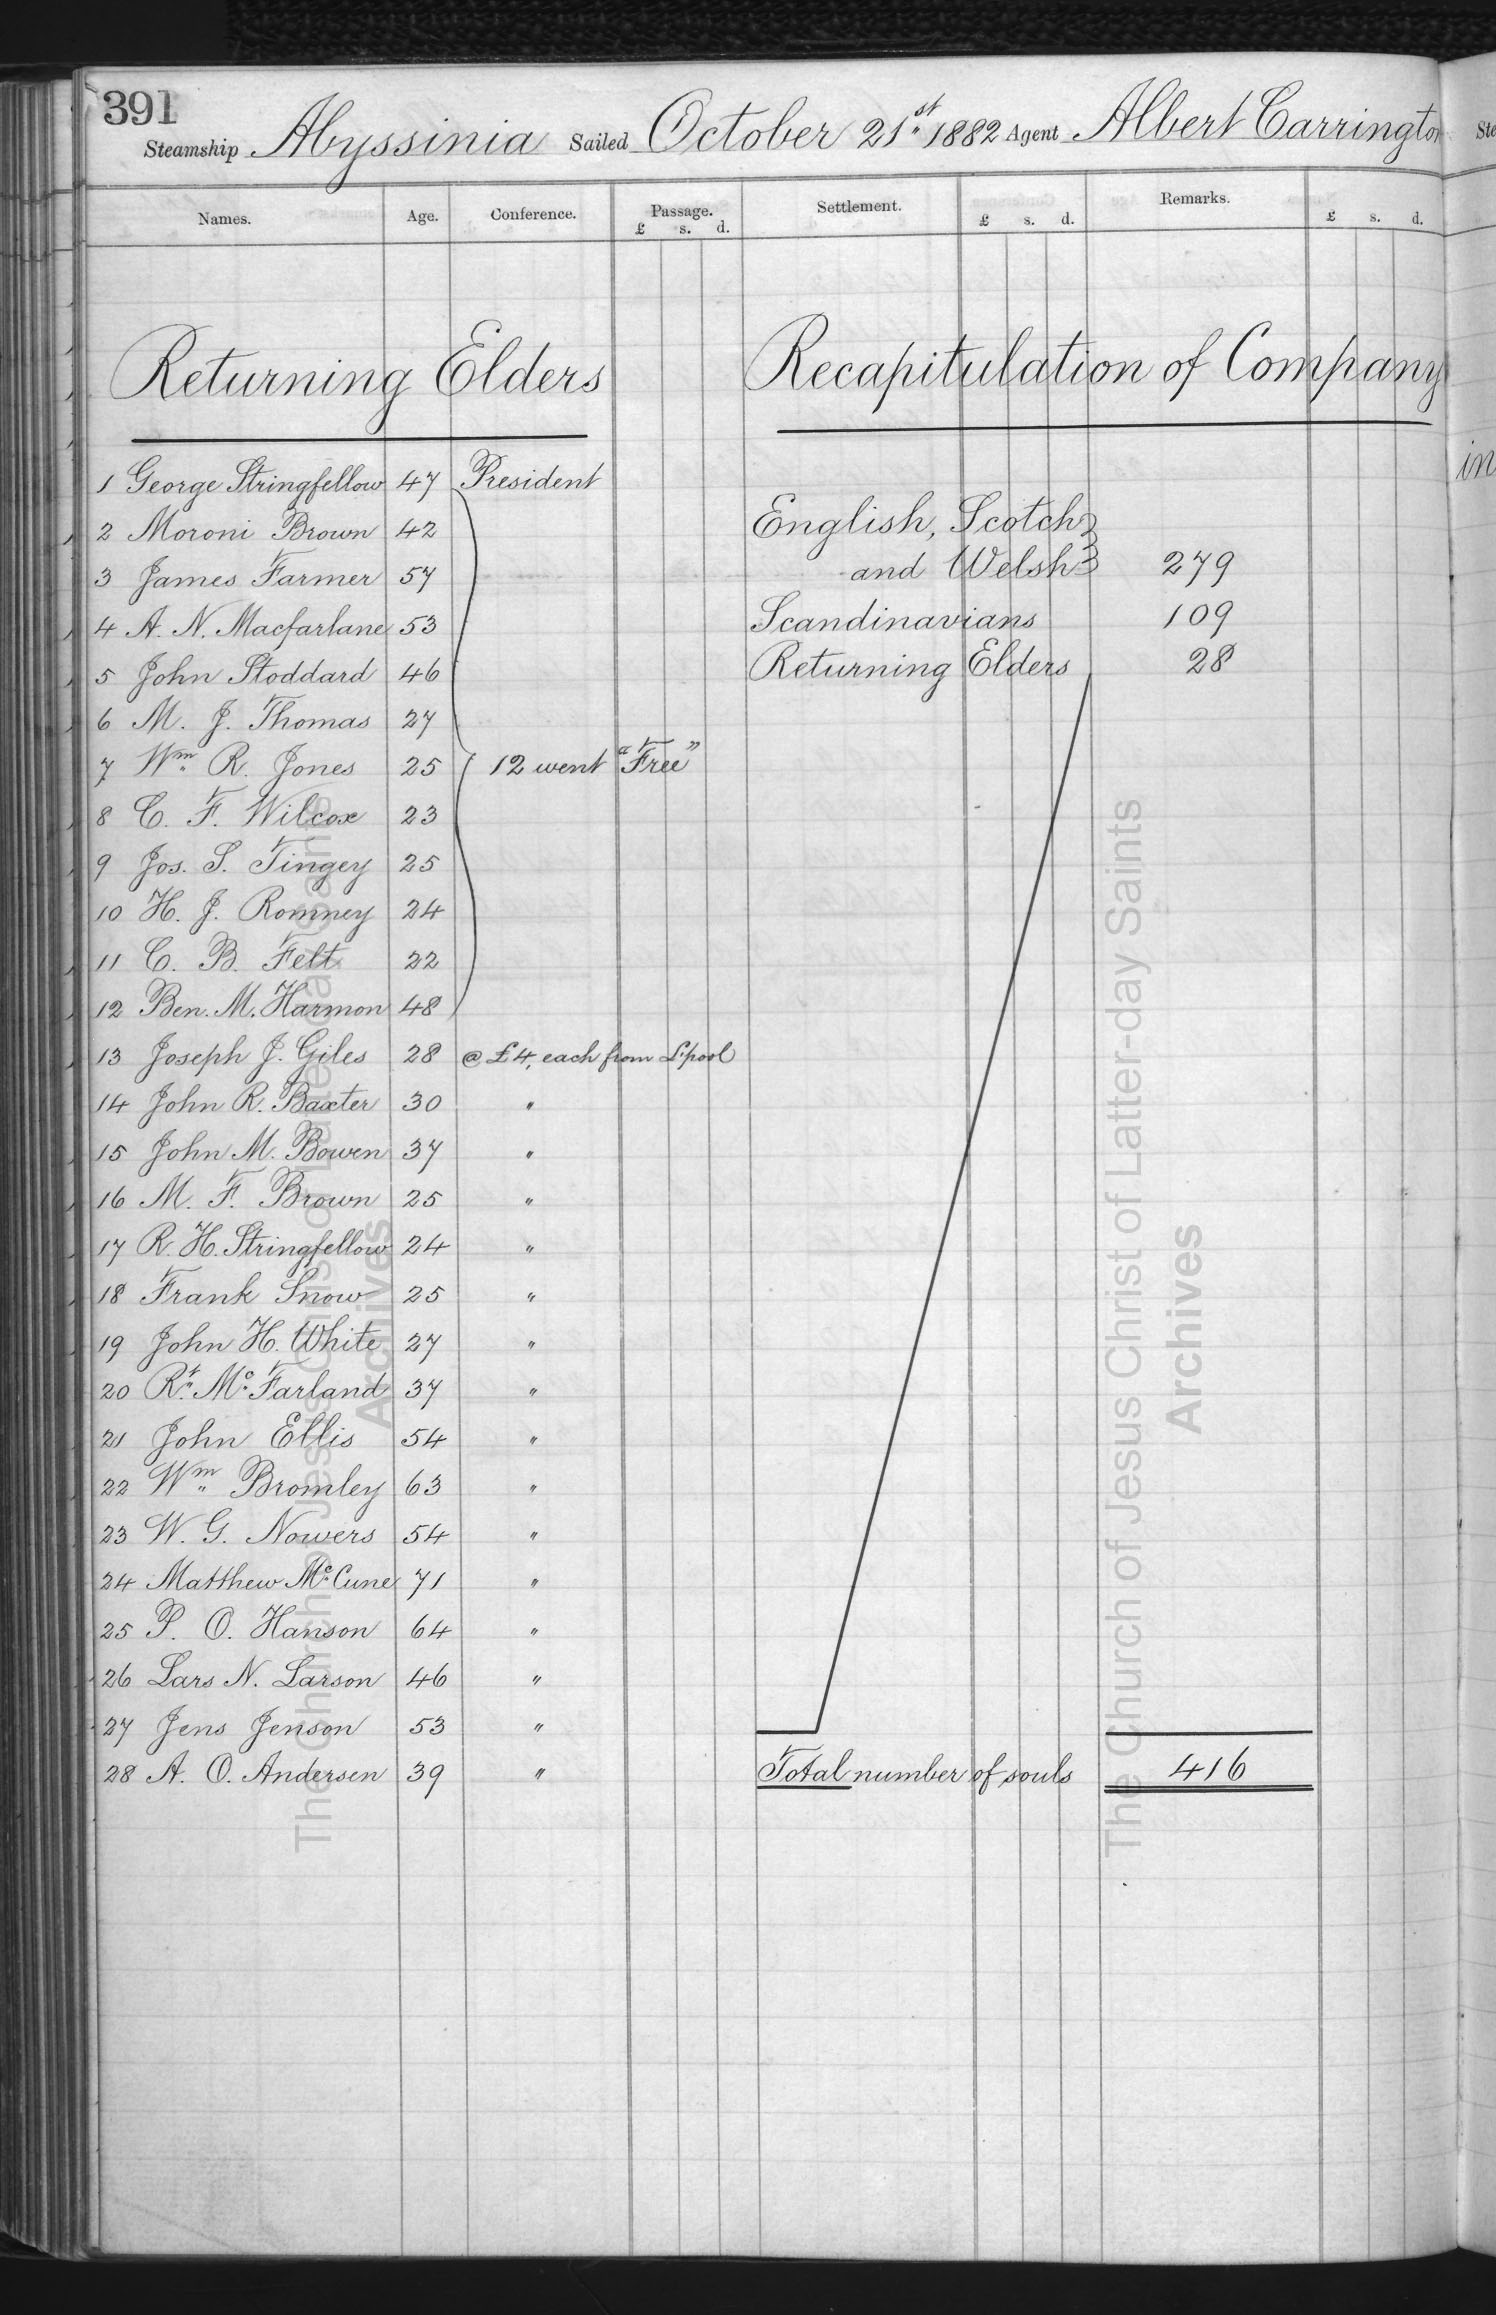 391
Steamship Abyssinia Sailed October 21st 1882 Agent Albert Carrington
Names. Age. Conference. Passage. £ s. d. Settlement. £ s. d. Remarks. £ s. d.
Returning Elders
1 George Stringfellow 47 President
2 Moroni Brown 42
3 James Farmer 57
4 A. N. Macfarlane 53
5 John Stoddard 46
6 M. J. Thomas 27
7 Wm R. Jones 25 12 went "Free"
8 C. F. Wilcox 23
9 Jos. S. Tingey 25
10 H. J. Romney 24
11 C. B. Felt 22
12 Ben. M. Harmon 48
13 Joseph J. Giles 28 @ £4, each from L'pool
14 John R. Baxter 30 "
15 John M. Bowen 37 "
16 M. F. Brown 25 "
17 R. H. Stringfellow 24 "
18 Frank Snow 25 "
19 John H. White 27 "
20 Rt. Mc Farland 37 "
21 John Ellis 54 "
22 Wm Bromley 63 "
23 W. G. Nowers 54 "
24 Matthew McCune 71 "
25 P. O. Hanson 64 "
26 Lars N. Larson 46 "
27 Jens Jenson 53 "
28 A. O. Andersen 39 "
Recapitulation of Company
English, Scotch
and Welsh 279
Scandinavians 109
Returning Elders 28
Total number of souls 416
in
Ste
The Church of Jesus Christ of Latter-day Saints
Archives
The Church of Jesus Christ of Latter-day Saints
Archives